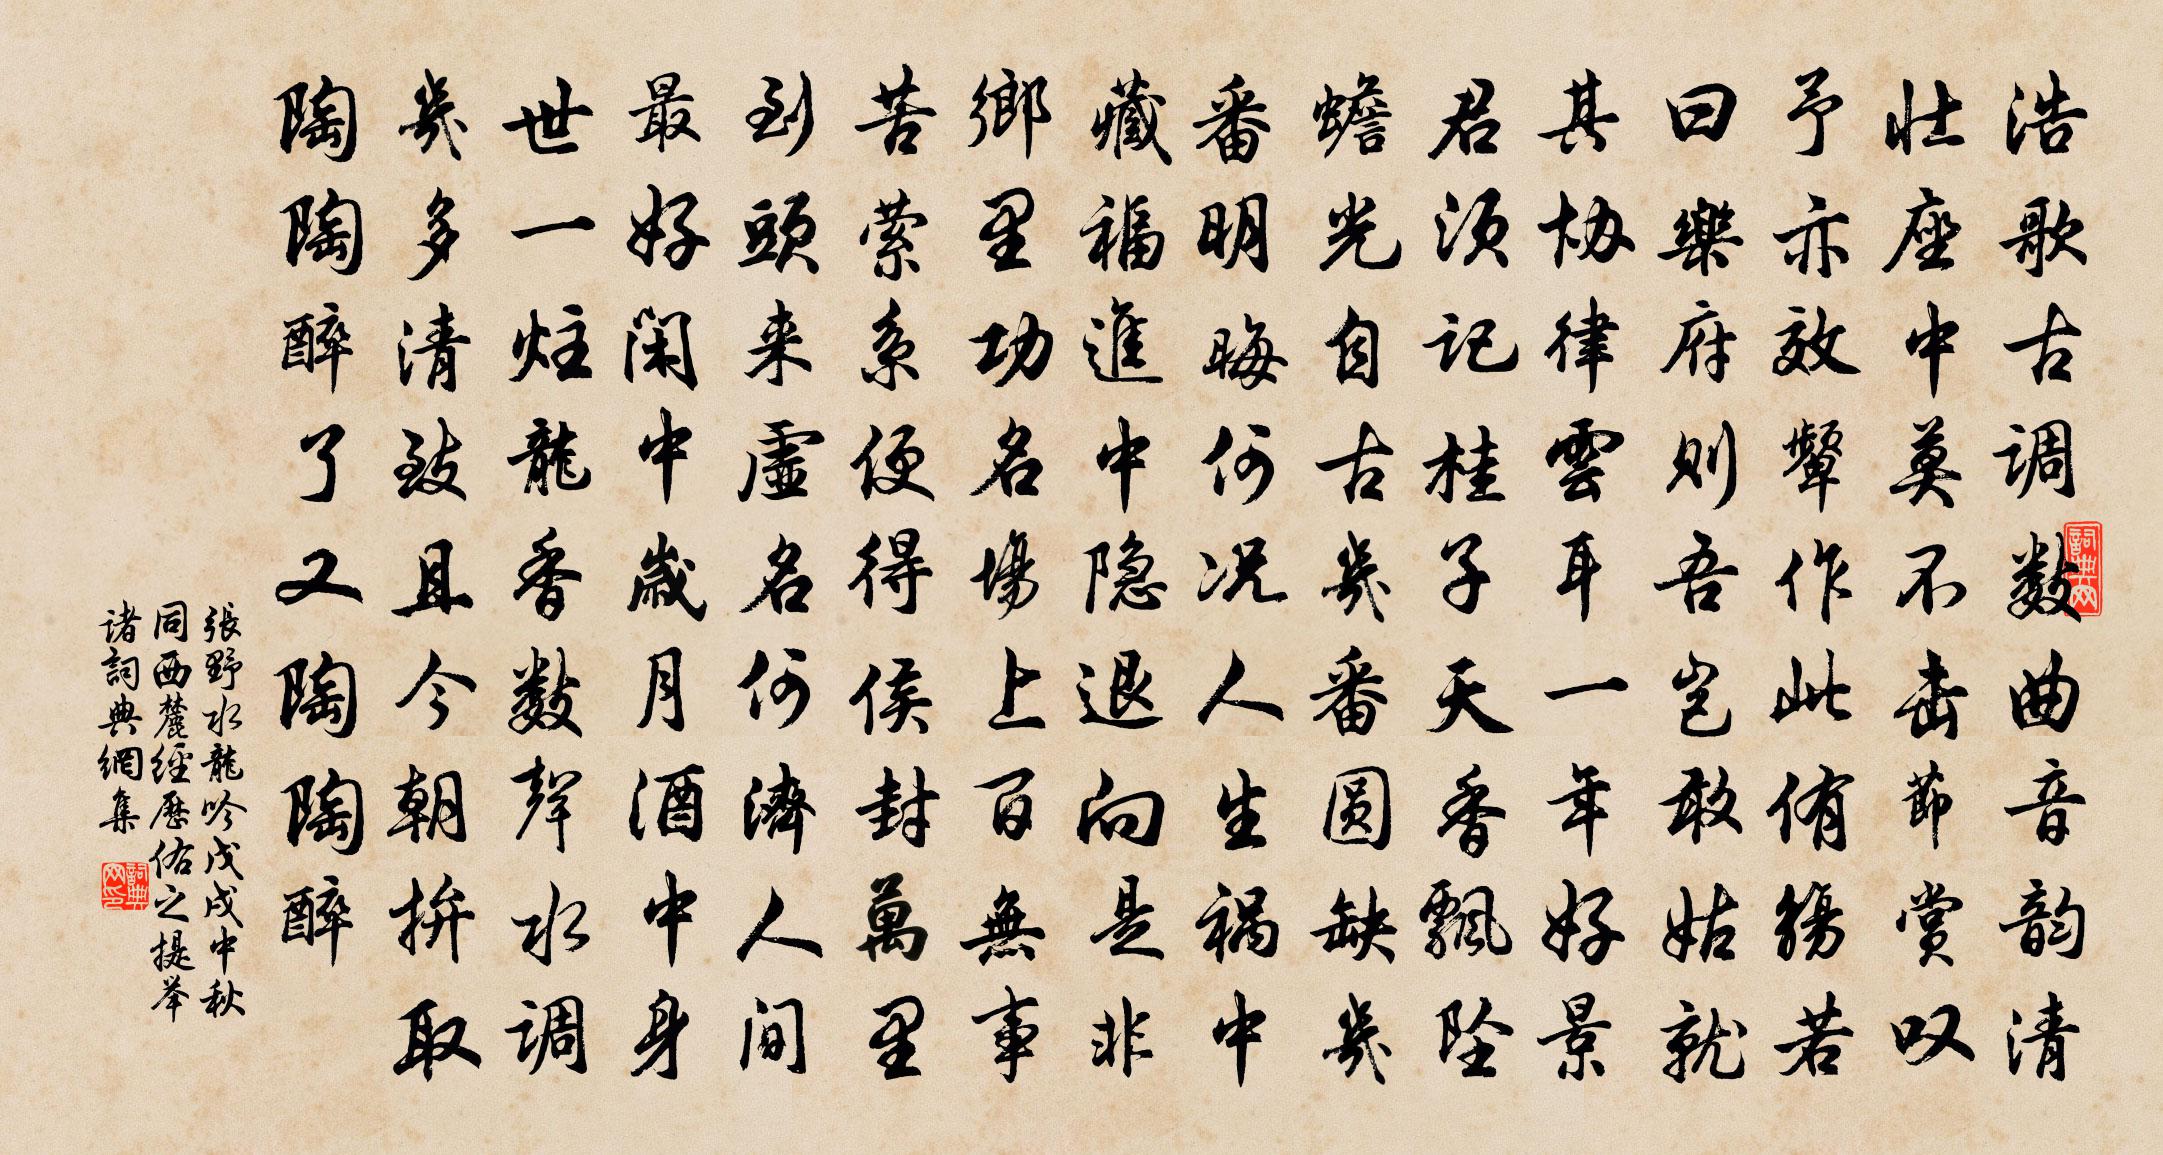 浩歌古调数曲音韵清
壮座中莫不击节赏叹
予亦效颦作此侑觞若
曰樂府则吾岂敢姑就
其协律雲耳一年好景
君须记桂子天香飄坠
蟾光自古幾番圆缺幾
番明晦何况人生祸中
藏福進中隐退向是非
鄉里功名場上百無事
苦萦系便得侯封萬里
到頭来虚名何濟人间
最好闲中歲月酒中身
世一炷龍香数聲水调
幾多清致且今朝拚取
陶陶醉了又陶陶醉
張野水龍吟戊戌中秋
同西麓經歷佑之提举
诸詞典網集
詞典网
詞典网印